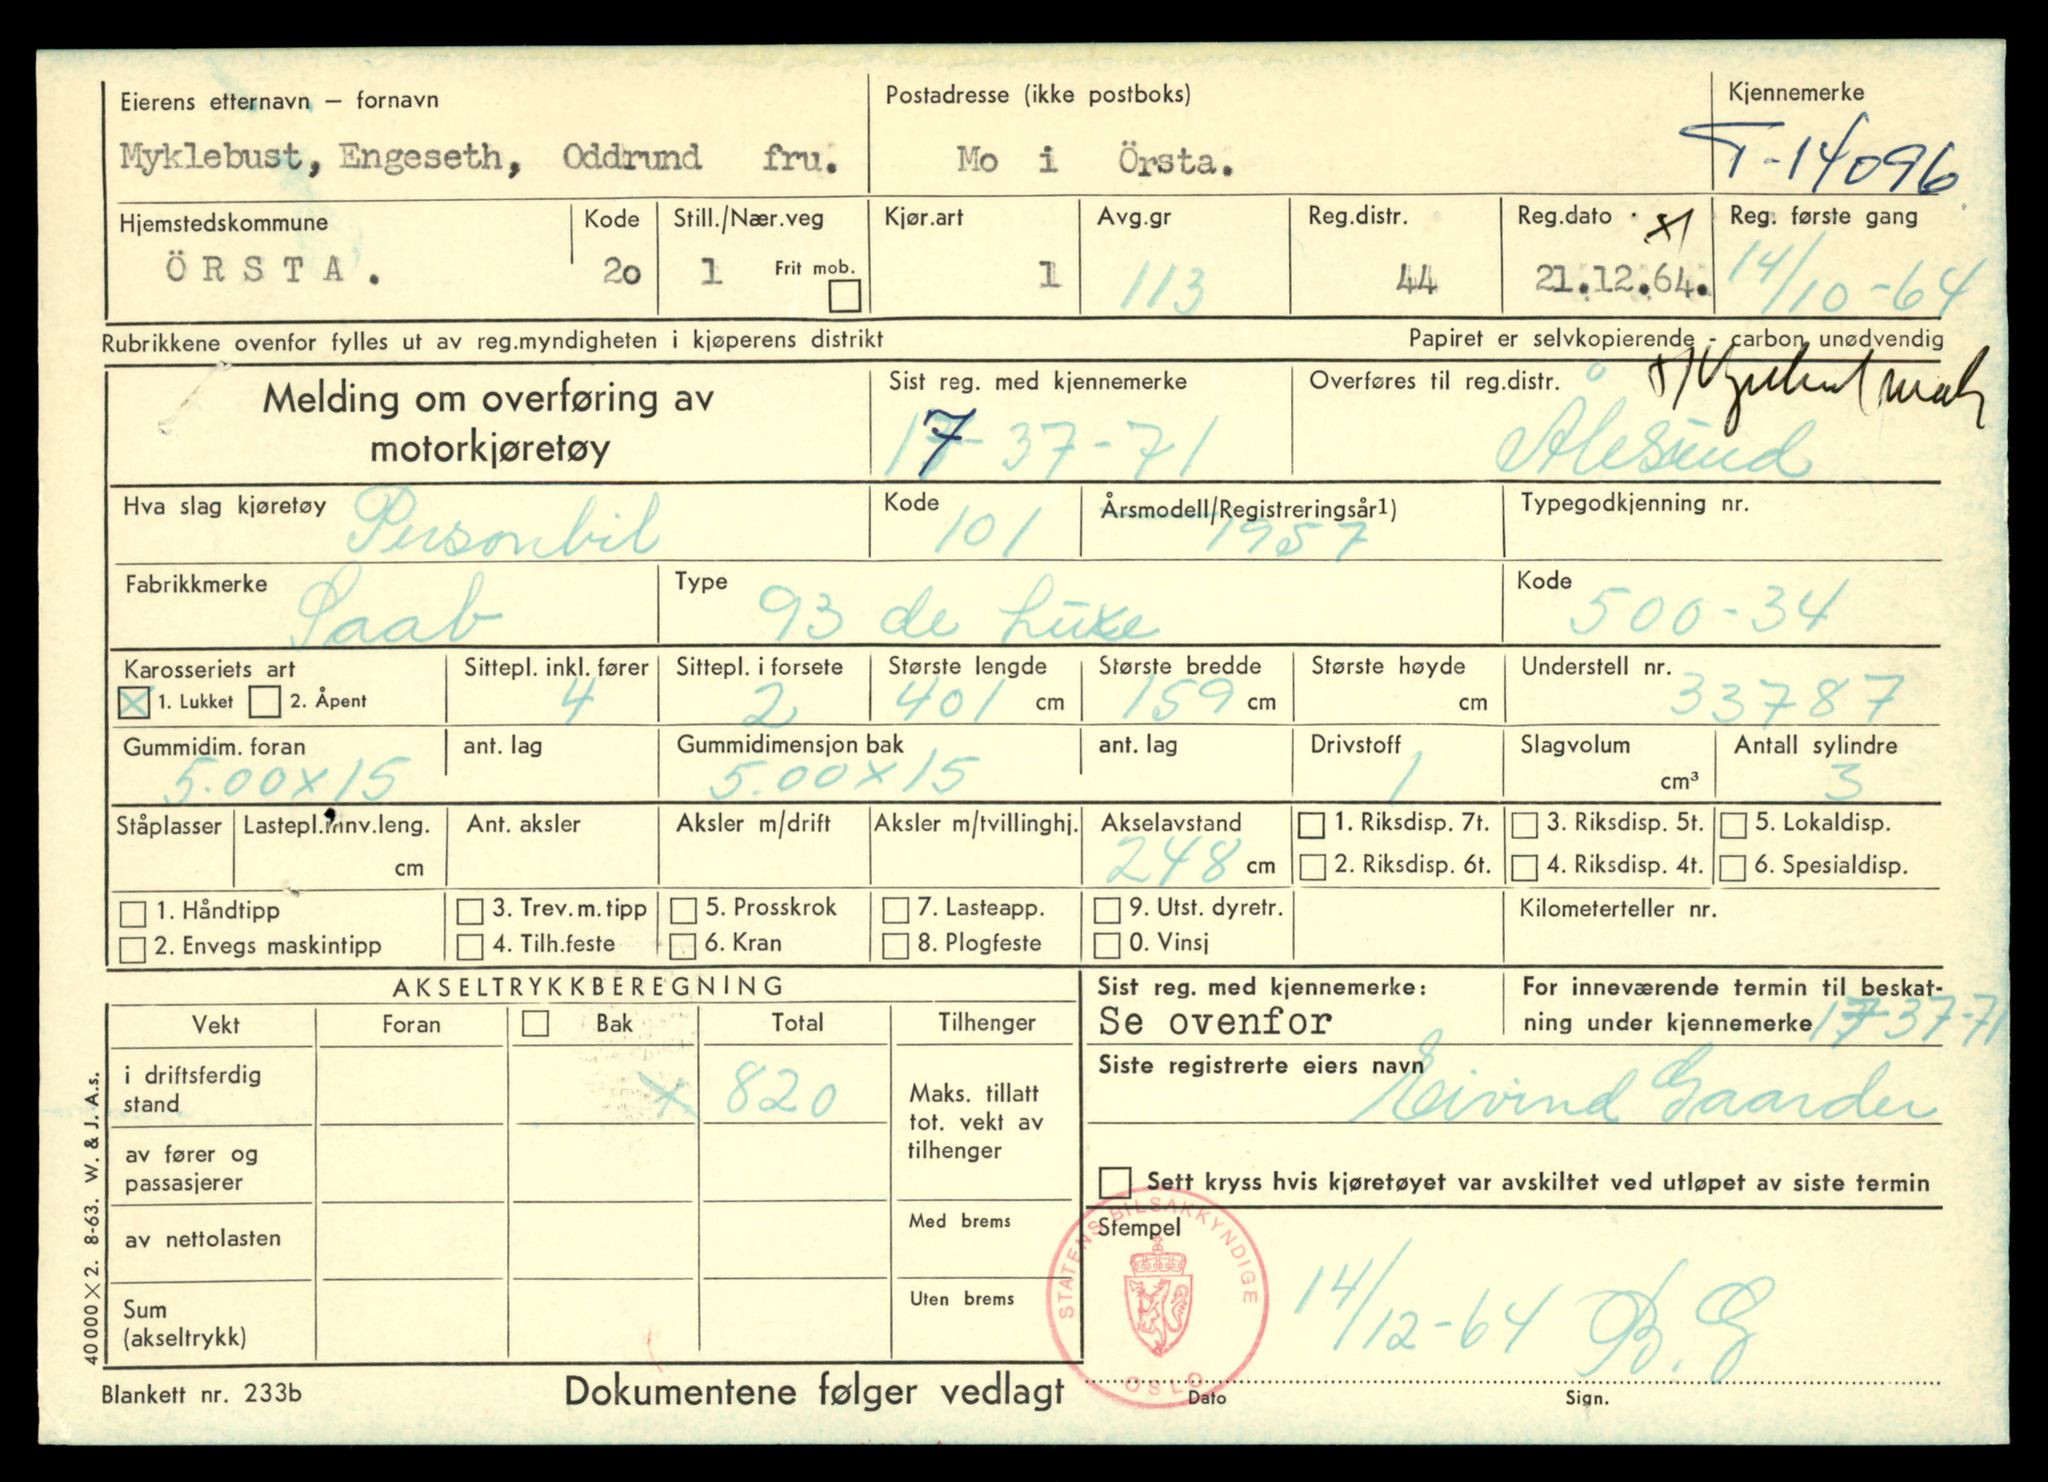 Eierens etternavn – fornavn
Postadresse (ikke postboks)
Kjennemerke
Myklebust, Engeseth, Oddrund fru.
Mo i Örsta.
T-14096
Hjemstedskommune
Kode
Still./Nær.veg
Kjør.art
Avg.gr
Reg.distr.
Reg.dato x)
Reg. første gang
ÖRSTA.
20
1
Frit mob.
1
113
44
21.12.64.
14/10-64
Rubrikkene ovenfor fylles ut av reg.myndigheten i kjøperens distrikt
Papiret er selvkopierende - carbon unødvendig
Melding om overføring av
motorkjøretøy
Sist reg. med kjennemerke
Overføres til reg.distr.
17-37-71
Ålesund
Hva slag kjøretøy
Kode
Årsmodell/Registreringsår1)
Typegodkjenning nr.
Personbil
101
1957
Fabrikkmerke
Type
Kode
Saab
93 de Luxe
500-34
Karosseriets art
Sittepl. inkl. fører
Sittepl. i forsete
Største lengde
Største bredde
Største høyde
Understell nr.
1. Lukket 2. Åpent
4
2
401 cm
159 cm
cm
33787
Gummidim. foran
ant. lag
Gummidimensjon bak
ant. lag
Drivstoff
Slagvolum
Antall sylindre
5.00x15
5.00x15
1
cm³
3
Ståplasser
Lastepl. innv. leng.
Ant. aksler
Aksler m/drift
Aksler m/tvillinghj.
Akselavstand
1. Riksdisp. 7t.
3. Riksdisp. 5t.
5. Lokaldisp.
cm
248 cm
2. Riksdisp. 6t.
4. Riksdisp. 4t.
6. Spesialdisp.
1. Håndtipp
3. Trev. m. tipp
5. Prosskrok
7. Lasteapp.
9. Utst. dyretr.
Kilometerteller nr.
2. Envegs maskintipp
4. Tilh.feste
6. Kran
8. Plogfeste
0. Vinsj
AKSELTRYKKBEREGNING
Sist reg. med kjennemerke:
Se ovenfor
For inneværende termin til beskat-
ning under kjennemerke 17-37-71
Vekt
Foran
Bak
Total
Tilhenger
i driftsferdig
stand
x 820
Maks. tillatt
tot. vekt av
tilhenger
Siste registrerte eiers navn
Eivind Gaarder
av fører og
passasjerer
Sett kryss hvis kjøretøyet var avskiltet ved utløpet av siste termin
av nettolasten
Med brems
Stempel
STATENS BILSAKKYNDIGE
OSLO
14/12-64 B.G
Sum
(akseltrykk)
Uten brems
Dato
Sign.
Blankett nr. 233b
Dokumentene følger vedlagt
40000 X 2. 8-63. W. & J. A.s.